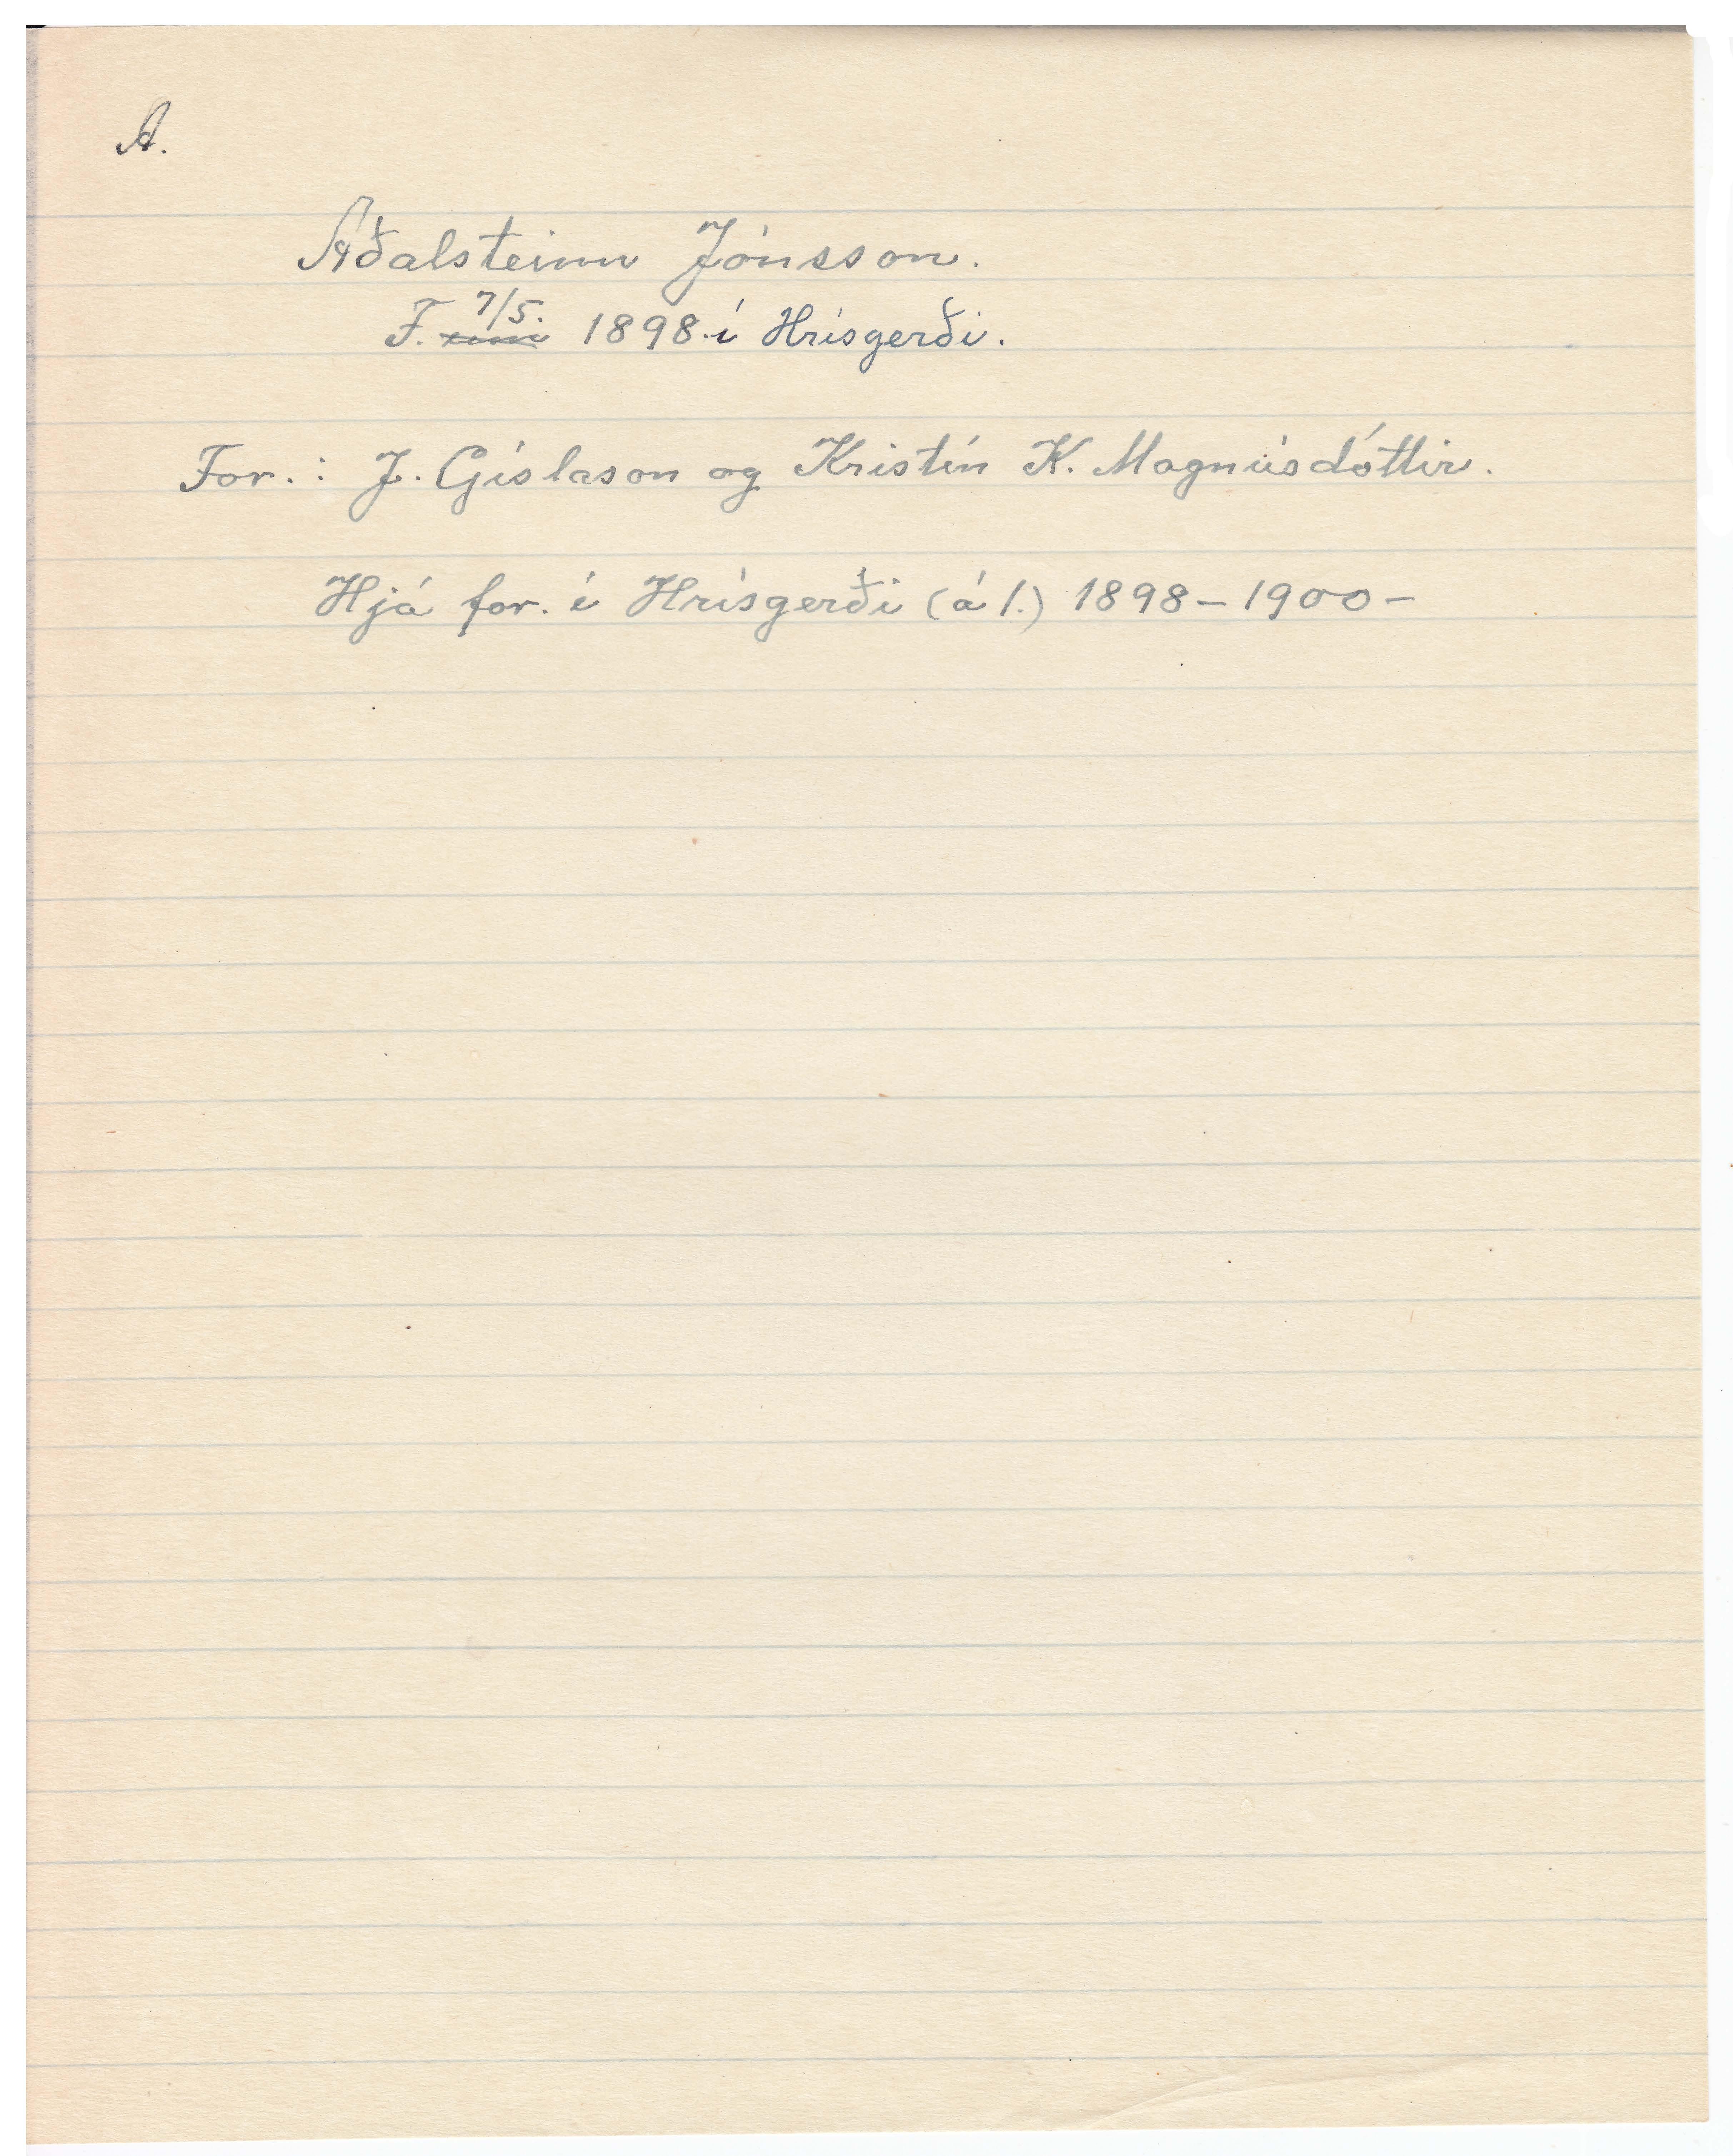 A.
Aðalsteinn Jónsson.
F. 7/5. 1898 í Hrísgerði.
For.: J. Gíslason og Kristín K. Magnúsdóttir.
Hjá for. í Hrísgerði (á 1.) 1898-1900-